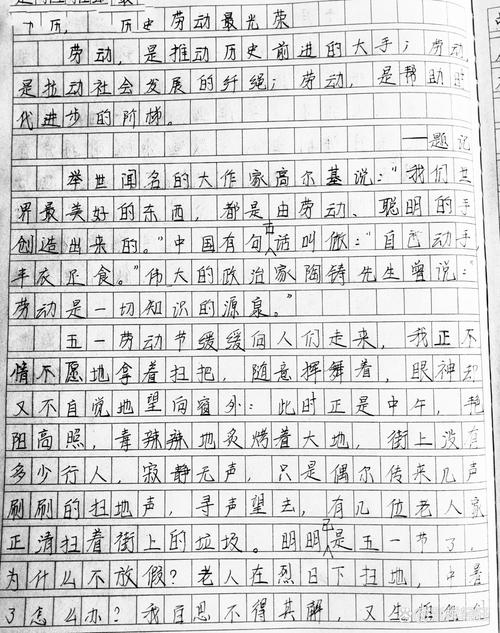 劳动最光荣
劳动，是推动历史前进的大手；劳动，
是拉动社会发展的纤绳；劳动，是帮助时
代进步的阶梯。
——题记
举世闻名的大作家高尔基说：“我们世
界最美好的东西，都是由劳动、聪明的手
创造出来的。”中国有句古话叫做：“自己动手，
丰衣足食。”伟大的政治家陶铸先生曾说：“
劳动是一切知识的源泉。”
五一劳动节缓缓向人们走来，我正不
情不愿地拿着扫把，随意挥舞着，眼神却
又不自觉地望向窗外：此时正是中午，艳
阳高照，毒辣辣地炙烤着大地，街上没有
多少行人，寂静无声，只是偶尔传来几声
刷刷的扫地声，寻声望去，有几位老人家
正清扫着街上的垃圾。明明已是五一节了，
为什么不放假？老人在烈日下扫地，中暑
了怎么办？我百思不得其解，又生